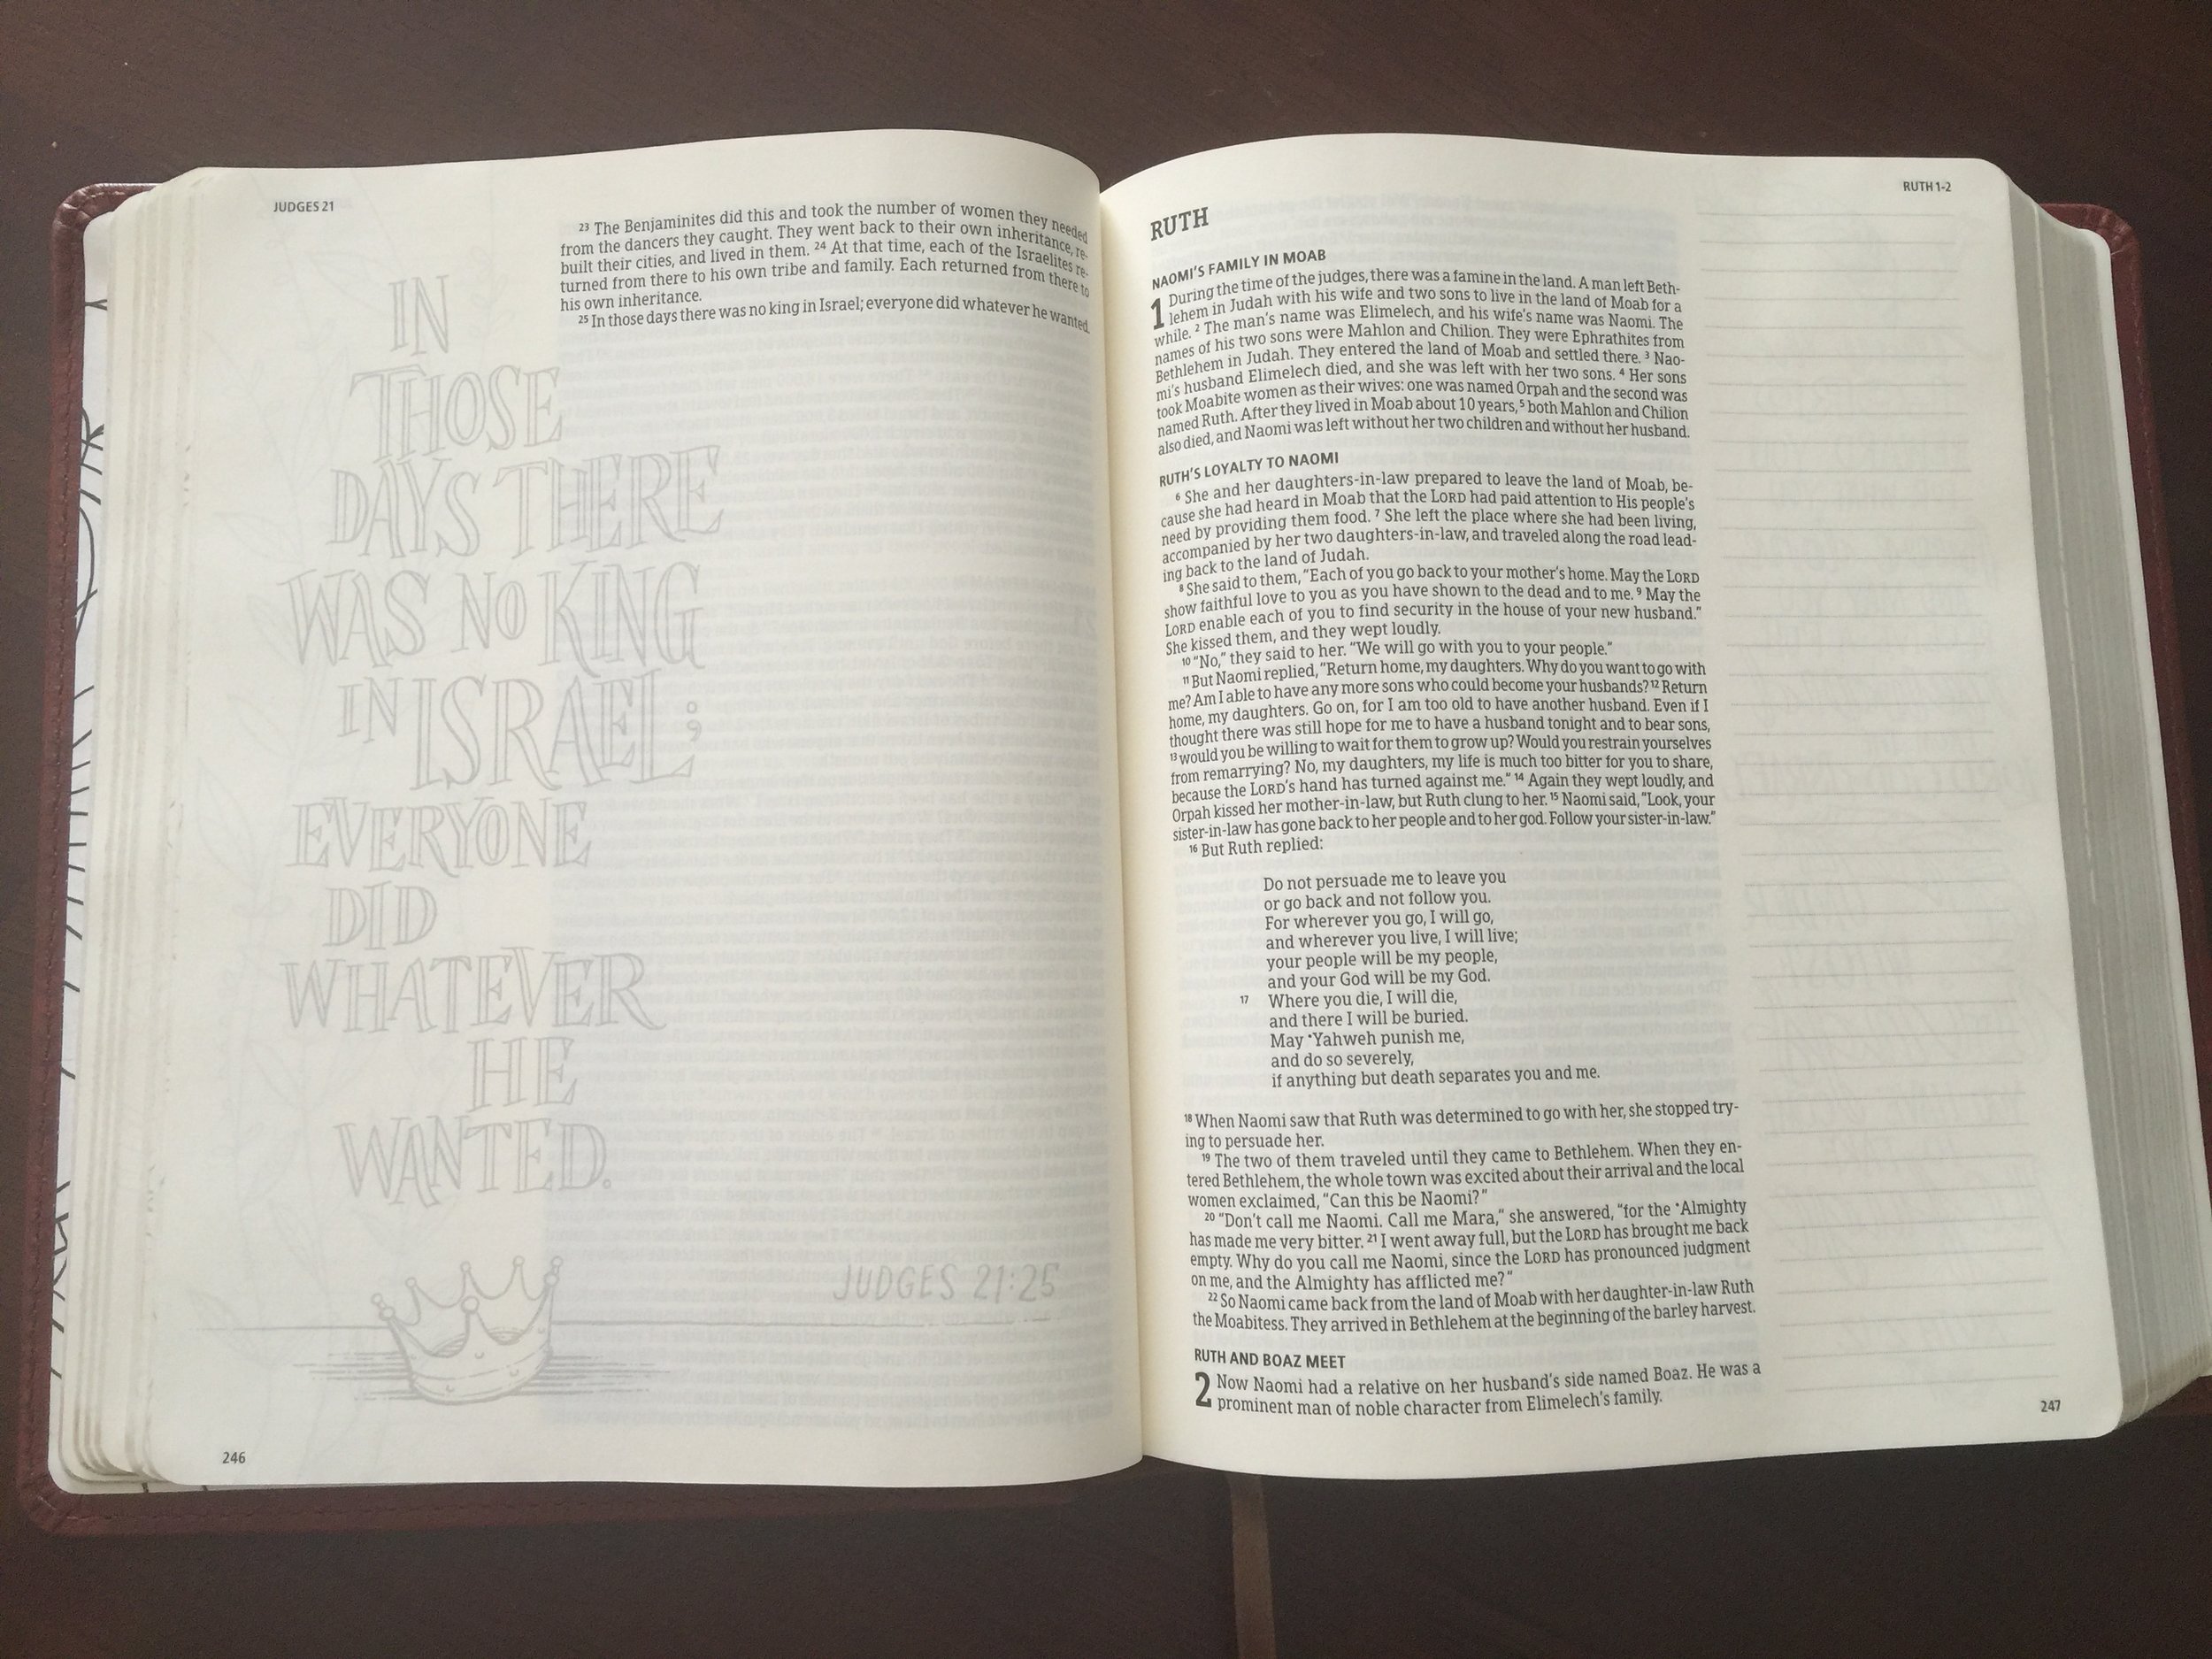 JUDGES 21
23 The Benjaminites did this and took the number of women they needed
from the dancers they caught. They went back to their own inheritance, re-
built their cities, and lived in them. 24 At that time, each of the Israelites re-
turned from there to his own tribe and family. Each returned from there to
his own inheritance.
25 In those days there was no king in Israel; everyone did whatever he wanted.
IN
THOSE
DAYS THERE
WAS NO KING
IN ISRAEL;
EVERYONE
DID
WHATEVER
HE
WANTED.
JUDGES 21:25
246
RUTH 1-2
RUTH
NAOMI'S FAMILY IN MOAB
1 During the time of the judges, there was a famine in the land. A man left Beth-
lehem in Judah with his wife and two sons to live in the land of Moab for a
while. 2 The man's name was Elimelech, and his wife's name was Naomi. The
names of his two sons were Mahlon and Chilion. They were Ephrathites from
Bethlehem in Judah. They entered the land of Moab and settled there. 3 Nao-
mi's husband Elimelech died, and she was left with her two sons. 4 Her sons
took Moabite women as their wives: one was named Orpah and the second was
named Ruth. After they lived in Moab about 10 years, 5 both Mahlon and Chilion
also died, and Naomi was left without her two children and without her husband.
RUTH'S LOYALTY TO NAOMI
6 She and her daughters-in-law prepared to leave the land of Moab, be-
cause she had heard in Moab that the LORD had paid attention to His people's
need by providing them food. 7 She left the place where she had been living,
accompanied by her two daughters-in-law, and traveled along the road lead-
ing back to the land of Judah.
8 She said to them, "Each of you go back to your mother's home. May the LORD
show faithful love to you as you have shown to the dead and to me. 9 May the
LORD enable each of you to find security in the house of your new husband."
She kissed them, and they wept loudly.
10 "No," they said to her. "We will go with you to your people."
11 But Naomi replied, "Return home, my daughters. Why do you want to go with
me? Am I able to have any more sons who could become your husbands? 12 Return
home, my daughters. Go on, for I am too old to have another husband. Even if I
thought there was still hope for me to have a husband tonight and to bear sons,
13 would you be willing to wait for them to grow up? Would you restrain yourselves
from remarrying? No, my daughters, my life is much too bitter for you to share,
because the LORD's hand has turned against me." 14 Again they wept loudly, and
Orpah kissed her mother-in-law, but Ruth clung to her. 15 Naomi said, "Look, your
sister-in-law has gone back to her people and to her god. Follow your sister-in-law."
16 But Ruth replied:
Do not persuade me to leave you
or go back and not follow you.
For wherever you go, I will go,
and wherever you live, I will live;
your people will be my people,
and your God will be my God.
17 Where you die, I will die,
and there I will be buried.
May •Yahweh punish me,
and do so severely,
if anything but death separates you and me.
18 When Naomi saw that Ruth was determined to go with her, she stopped try-
ing to persuade her.
19 The two of them traveled until they came to Bethlehem. When they en-
tered Bethlehem, the whole town was excited about their arrival and the local
women exclaimed, "Can this be Naomi?"
20 "Don't call me Naomi. Call me Mara," she answered, "for the •Almighty
has made me very bitter. 21 I went away full, but the LORD has brought me back
empty. Why do you call me Naomi, since the LORD has pronounced judgment
on me, and the Almighty has afflicted me?"
22 So Naomi came back from the land of Moab with her daughter-in-law Ruth
the Moabitess. They arrived in Bethlehem at the beginning of the barley harvest.
RUTH AND BOAZ MEET
2 Now Naomi had a relative on her husband's side named Boaz. He was a
prominent man of noble character from Elimelech's family.
247